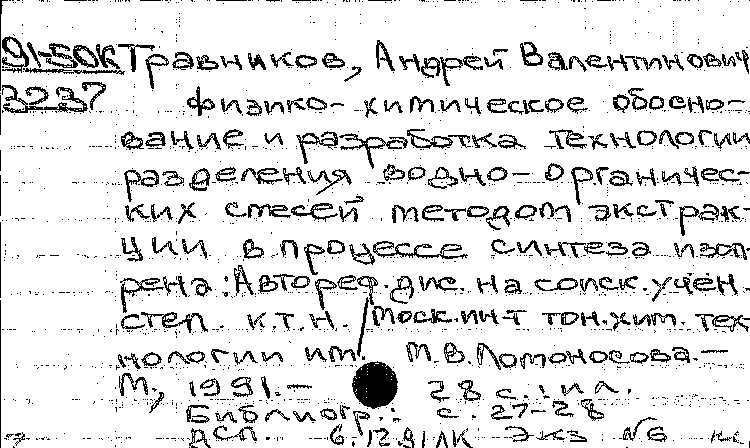 91-50К Травников, Андрей Валентинович
3237 Физико-химическое обосно-
вание и разработка технологии
разделения водно-органичес-
ких смесей методом экстрак-
ции в процессе синтеза изоп
рена: Автореф. дис. на соиск. учен.
степ. к.т.н. / Моск. ин-т тон. хим. тех
нологии им. М.В. Ломоносова. —
М., 1991. — 28 с. : ил.
Библиогр.: с. 27-28
ДСП. 6.12.91 ЛК Экз №6